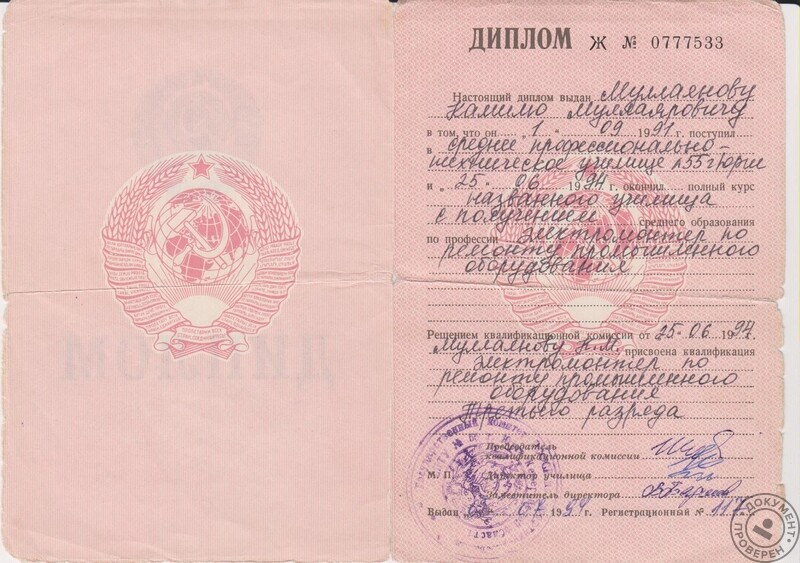 ДИПЛОМ Ж № 0777533
Настоящий диплом выдан Муллаянову
Мулхаяровичу
в том, что он „1" 09 1991 г. поступил
в среднее профессионально-
техническое училище №55 г. Юрги
и „25" 06 1994 г. окончил полный курс
названного училища
с получением среднего образования
по профессии электромонтер по
ремонту промышленного
оборудования
Решением квалификационной комиссии от 25.06 1994
Муллаянову присвоена квалификация
электромонтер по
ремонту промышленного
оборудования
третьего разряда
Председатель
квалификационной комиссии
М. П. Директор училища
Заместитель директора
Выдан 07 1994 г. Регистрационный №
ДОКУМЕНТ ПРОВЕРЕН